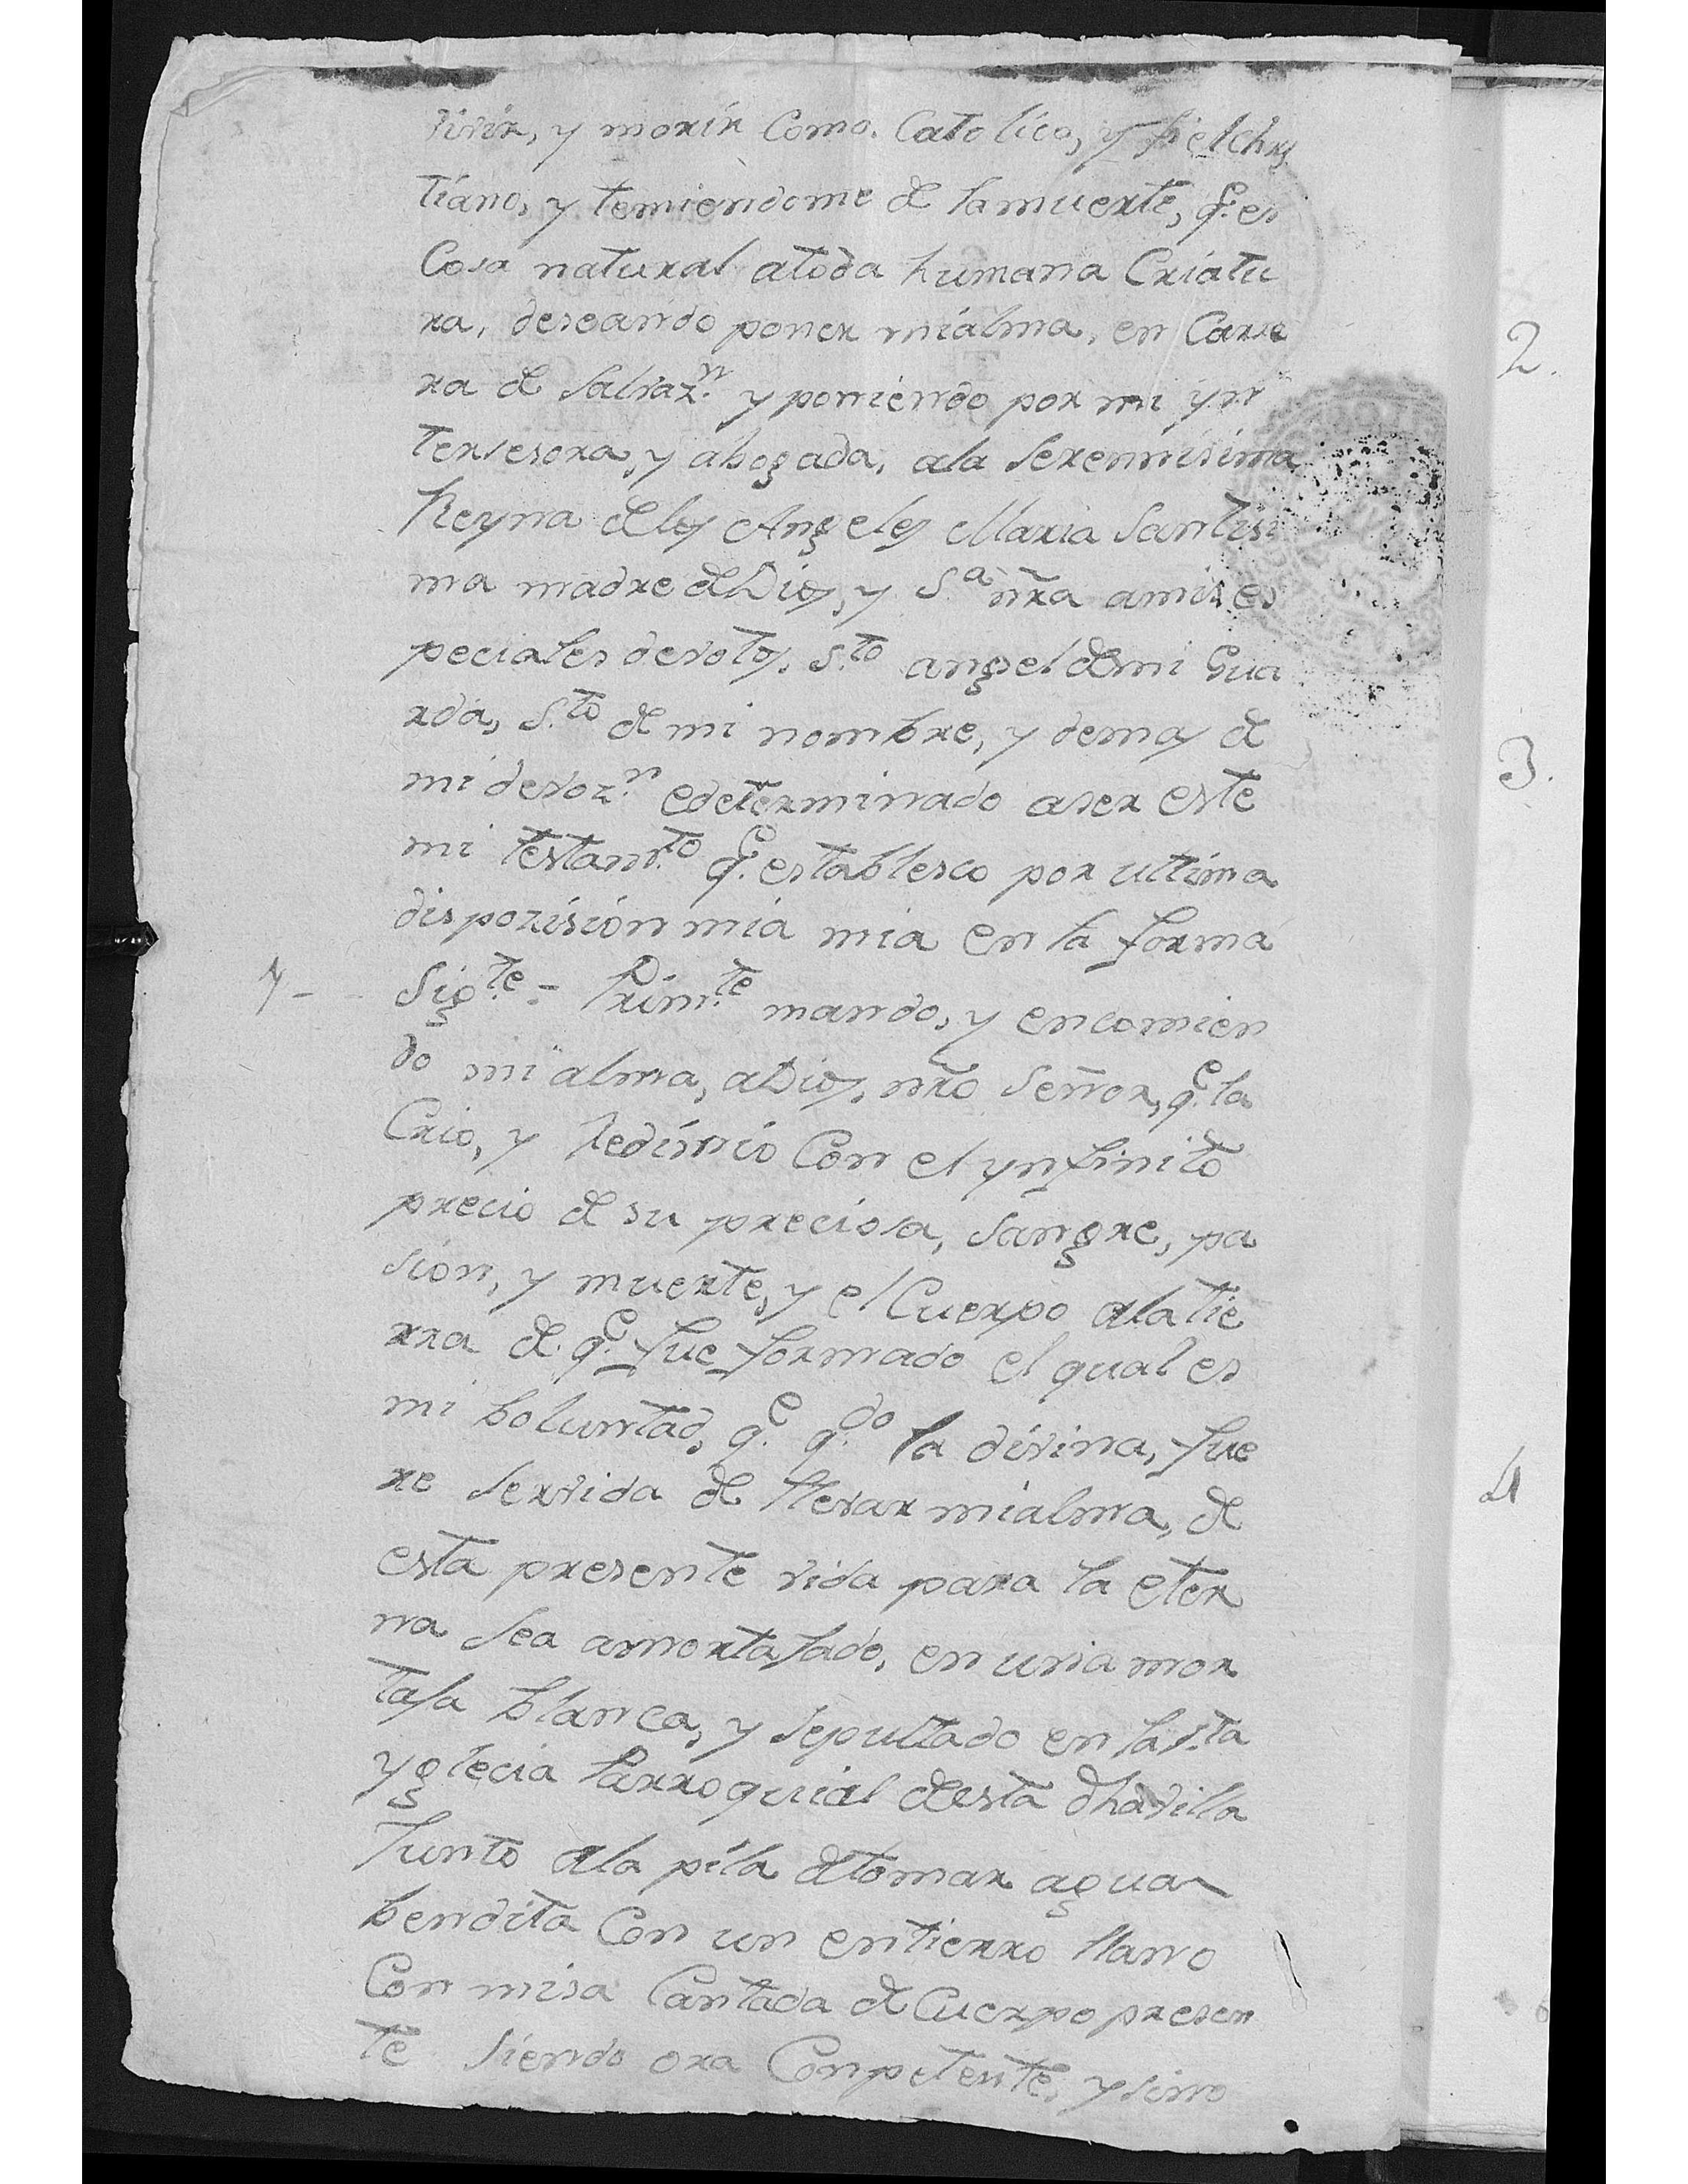 vivir, y morir Como. Catolico, y fiel chrys
tiano, y temiendome de la muerte, q.e es
Cosa natural atoda humana Criatu
ra, deseando poner mialma, en Carre
ra de Salvaz.n y poniendo por mi yn
tersesora, y abogada, ala Serennisima
Reyna delos Angeles Maria Santisi
ma madre de Dios, y S.a nr̃a amis es
peciales devotos, S.to angel de mi Gua
rda, S.to de mi nombre, y demas de
mi devoz.n edeterminado aser este
mi testam.to q.e establesco por ultima
dispozision mia mia en la forma
1 - Sig.te = Prim.te mando, y encomien
do mi alma, a Dios, nr̃o Señor, q.e la
Crio, y Redimio Con el ynfinito
precio de su preciosa, Sangre, pa
sion, y muerte, y el Cuerpo ala tie
rra de q.e fue formado el qual es
mi boluntad, q.e q.do la divina, fue
re Servida de llevar mialma, de
esta presente vida para la eter
na Sea amortajado, en una mor
taja blanca, y Sepultado en la S.ta
yglecia Parroquial desta dha villa
Junto ala pila de tomar agua
bendita Con un entierro llano
Con misa Cantada de Cuerpo presen
te Siendo ora Conpetente, y sino
2.
3.
4